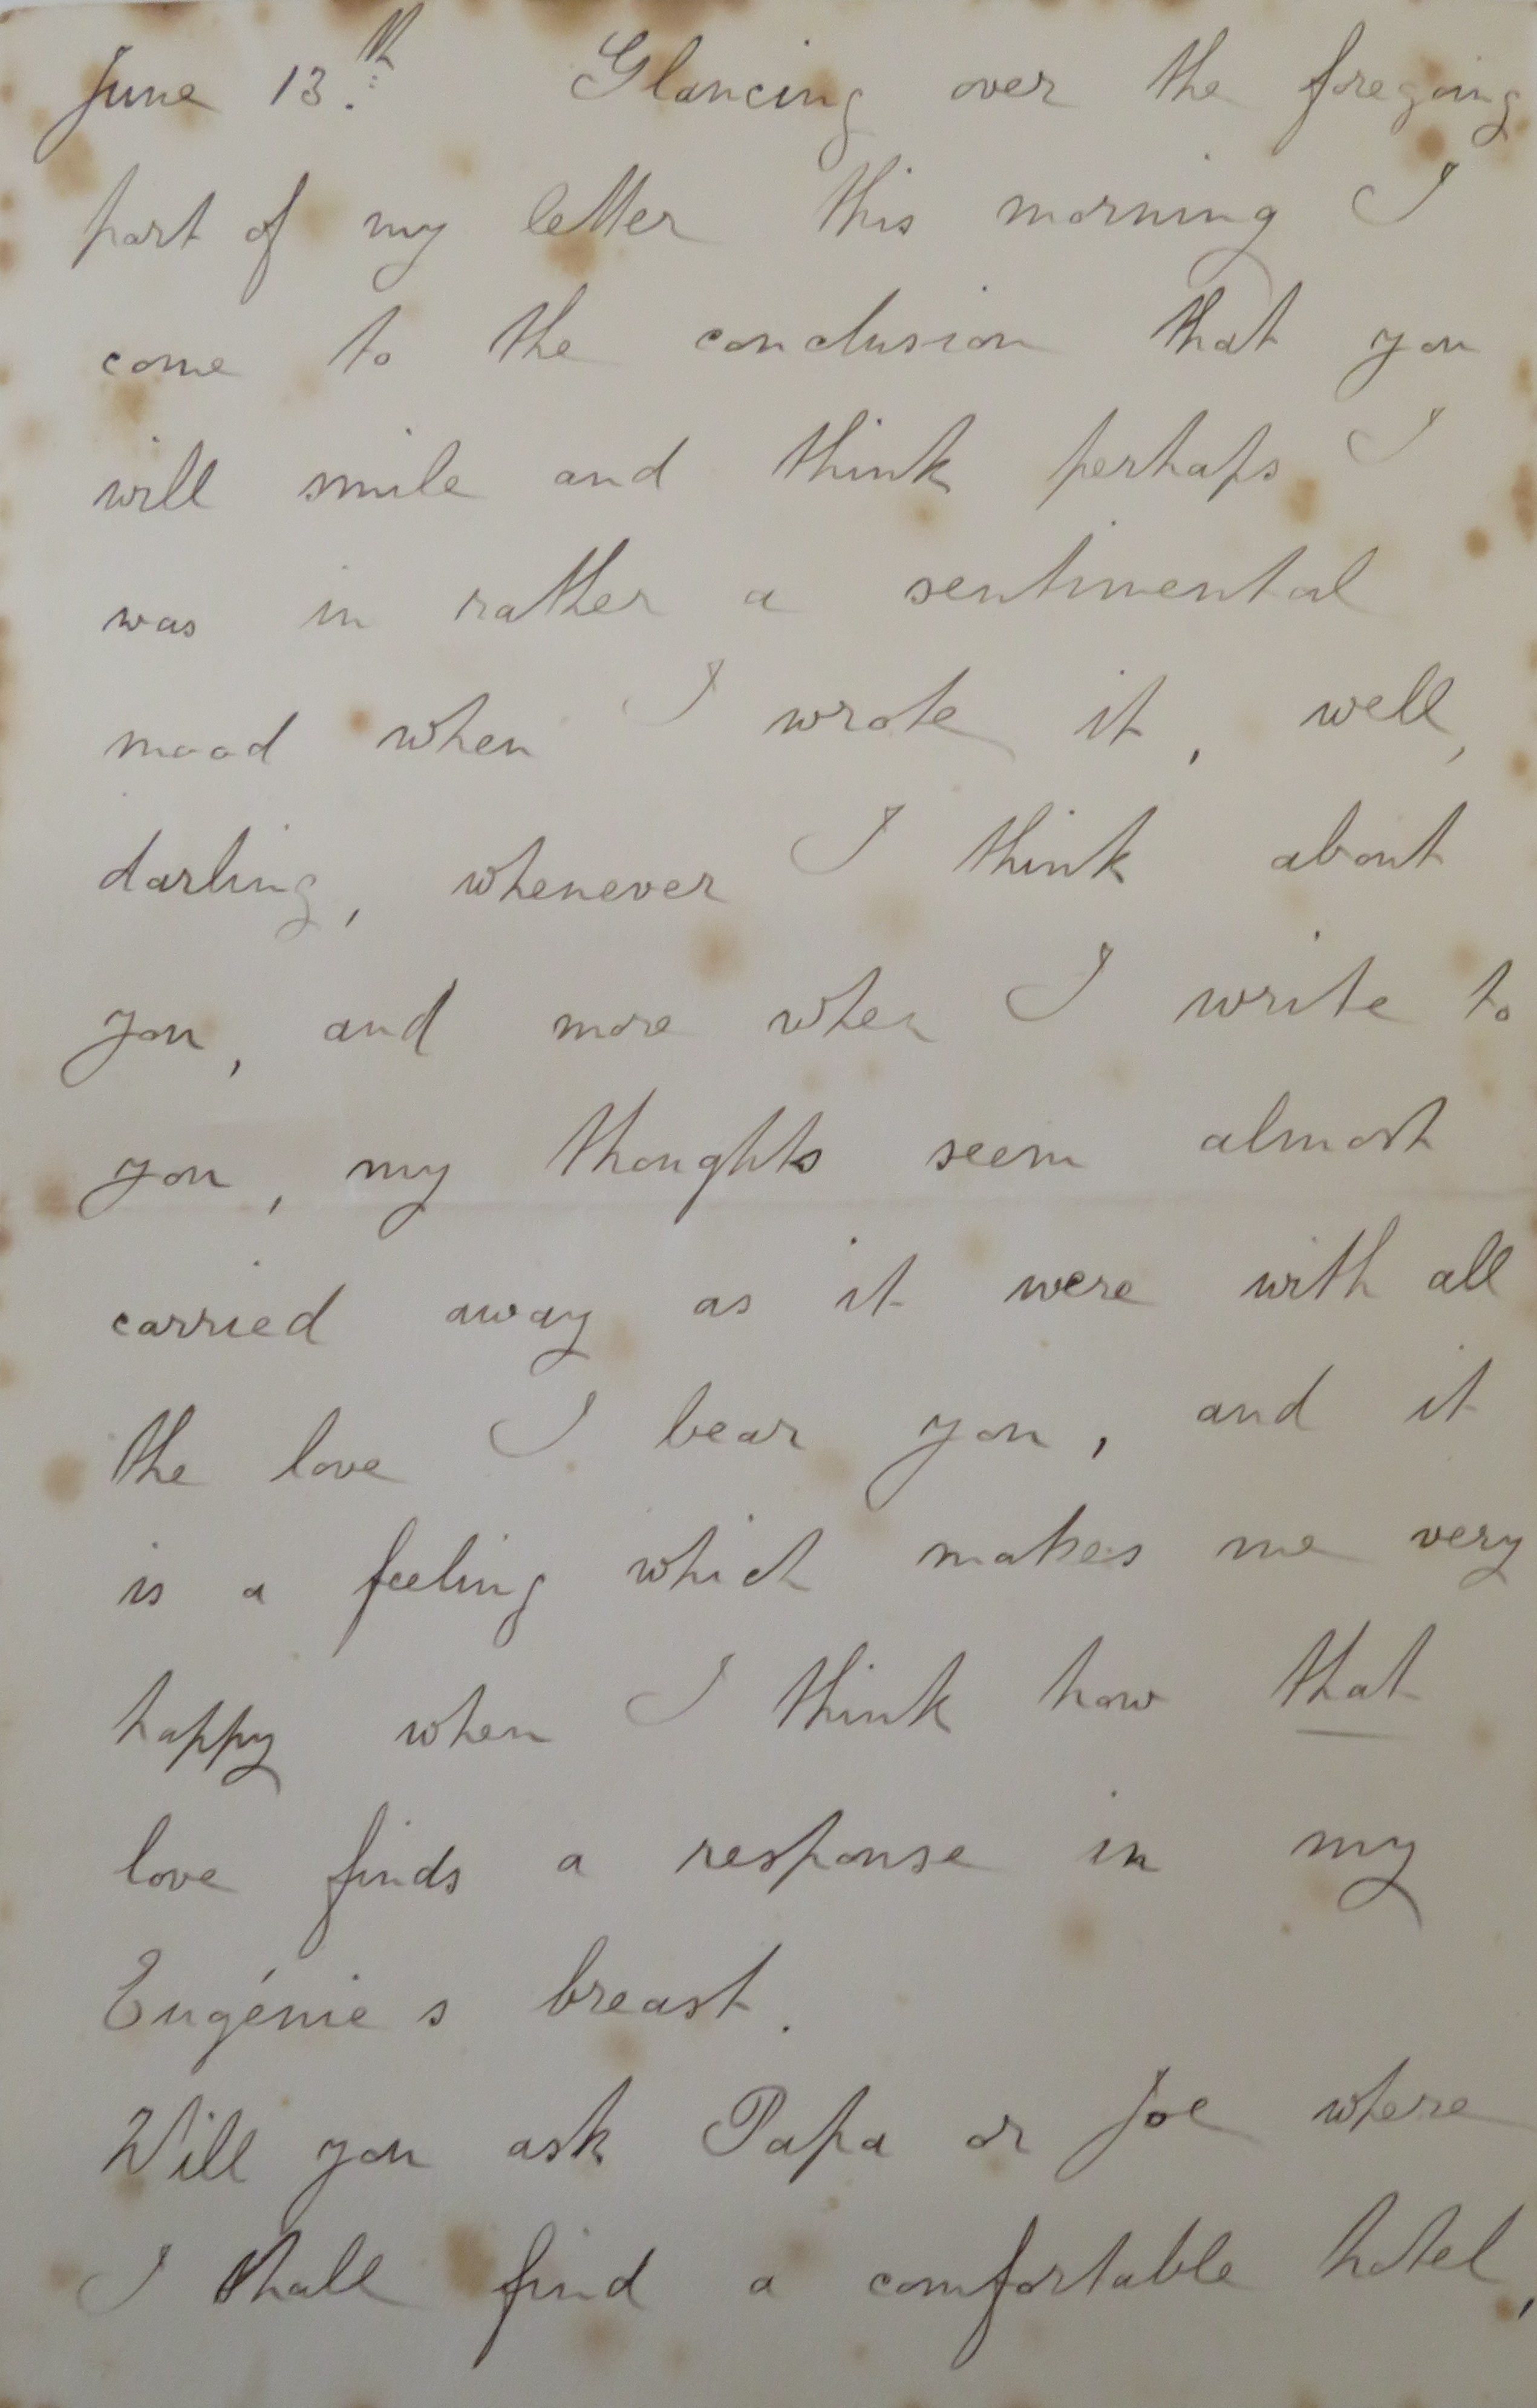 June 13.th Glancing over the foregoing
part of my letter this morning I
come to the conclusion that you
will smile and think perhaps I
was in rather a sentimental
mood when I wrote it, well,
darling, whenever I think about
you, and more when I write to
you, my thoughts seem almost
carried away as it were with all
the love I bear you, and it
is a feeling which makes me very
happy when I think how that
love finds a response in my
Eugénie s breast.
Will you ask Papa or Joe where
I shall find a comfortable hotel,